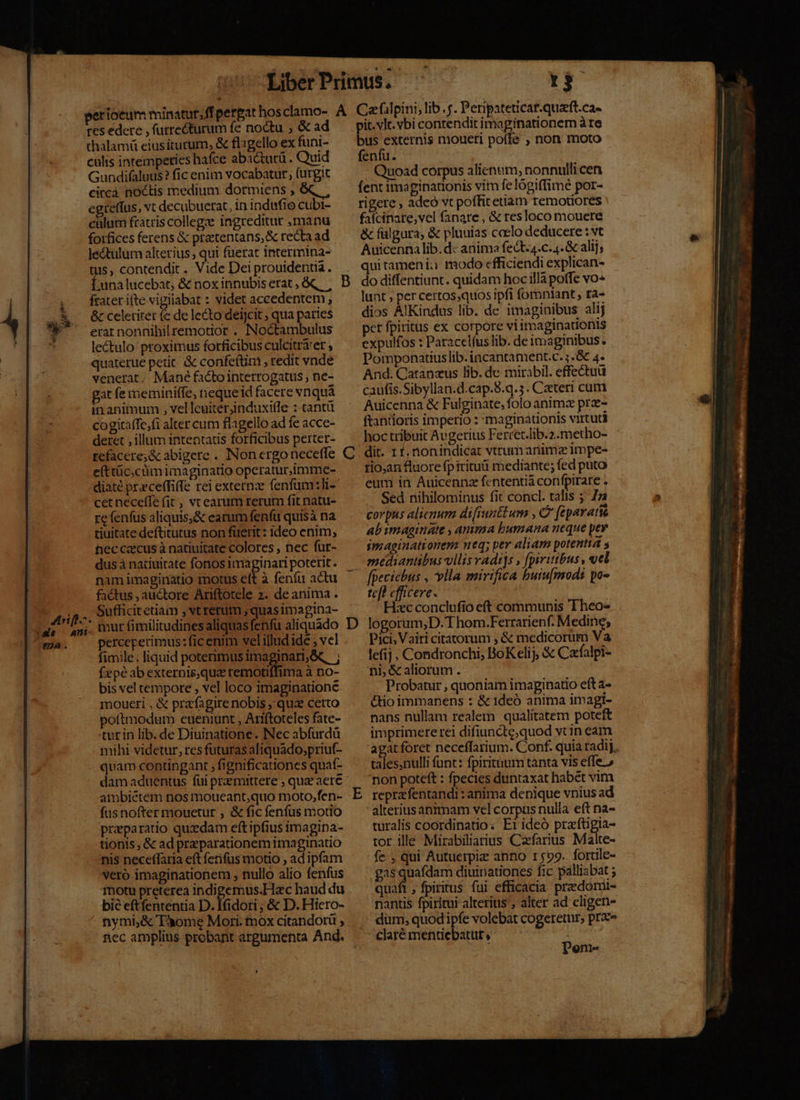 Liber Primus. 13
periocum minatur, si pergat hos clamo-
res edere, surrecturum se noctu, & ad
thalamū eius iturum, & flagello ex funi-
culis intemperies hasce abacturū. Quid
Gundisaluus? sic enim vocabatur, surgit
circa noctis medium dormiens, &
egressus, vt decubuerat, in indusio cubi-
culum fratris collegæ ingreditur, manu
forfices ferens & prætentans, & recta ad
lectulum alterius, qui fuerat intermina-
tus, contendit. Vide Dei prouidentiā.
Luna lucebat, & nox innubis erat, &
frater iste vigilabat: videt accedentem,
& celeriter se de lecto deijcit, qua paries
erat nonnihil remotior. Noctambulus
lectulo proximus forficibus culcitrā ter,
quaterue petit & confestim, redit vnde
venerat. Manè facto interrogatus, ne-
gat se meminisse, neque id facere vnquā
in animum, vel leuiter, induxisse: tantū
cogitasse, si alter cum flagello ad se acce-
deret, illum intentatis forficibus perter-
refacere, & abigere. Non ergo necesse
est tūc, cùm imaginatio operatur, imme-
diatè præcessisse rei externæ sensum: li-
cet necesse sit, vt earum rerum sit natu-
re sensus aliquis, & earum sensu quis à na
tiuitate destitutus non fuerit: ideo enim,
nec cæcus à natiuitate colores, nec sur-
dus à natiuitate sonos imaginari poterit.
nam imaginatio motus est à sensu actu
factus, auctore Aristotele 2. de anima.
Sufficit etiam, vt rerum, quas imagina-
mur similitudines aliquas sensu aliquādo
perceperimus: sic enim vel illud idē, vel
simile, liquid poterimus imaginari, & ;
sæpè ab externis, quæ remotissima à no-
bis vel tempore, vel loco imaginationē
moueri, & præsagire nobis, quæ certo
postmodum eueniunt, Aristoteles fate-
tur in lib. de Diuinatione. Nec absurdū
mihi videtur, res futuras aliquādo, prius-
quam contingant, significationes quas-
dam aduentus sui præmittere, quæ aerē
ambiētem nos moueant, quo moto, sen-
sus noster mouetur, & sic sensus motio
præparatio quædam est ipsius imagina-
tionis, & ad præparationem imaginatio
nis necessaria est sensus motio, ad ipsam
verò imaginationem, nullo alio sensus
motu preterea indigemus. Hæc haud du
biè est sententia D. Isidori, & D. Hiero-
nymi, & Thome Mori. mox citandorū,
nec amplius probant argumenta And.
Aristo-
de ani-
ma.
A
B
C
D
E
Cæsalpini, lib. 5. Peripateticar. quæst. ca-
pit. vlt. vbi contendit imaginationem à re
bus externis moueri posse, non moto
sensu.
Quoad corpus alienum, nonnulli cen
sent imaginationis vim se lōgissimè por-
rigere, adeò vt possit etiam remotiores
fascinare, vel sanare, & res loco mouere
& fulgura, & pluuias cœlo deducere: vt
Auicenna lib. de anima sect. 4. c. 4. & alij,
qui tamen in modo efficiendi explican-
do dissentiunt. quidam hoc illā posse vo-
lunt, per certos, quos ipsi somniant, ra-
dios AlKindus lib. de imaginibus alij
per spiritus ex corpore vi imaginationis
expulsos: Paracelsus lib. de imaginibus.
Pomponatius lib. incantament. c. 3. & 4.
And. Catanæus lib. de mirabil. effectuū
causis. Sibyllan. d. cap. 8. q. 3. Cæteri cum
Auicenna & Fulginate, solo animæ præ-
stantioris imperio: imaginationis virtuti
hoc tribuit Augerius Ferrer. lib. 2. metho-
dit. 11. non indicat vtrum animæ impe-
rio, an fluore spirituū mediante; sed puto
eum in Auicennæ sententiā conspirare.
Sed nihilominus sit concl. talis; In
corpus alienum disiunctum, & separatū
ab imaginante, anima humana neque per
imaginationem neq; per aliam potentiā,
mediantibus vllis radijs, spiritibus, vel
speciebus, vlla mirifica huiusmodi po-
test efficere.
Hæc conclusio est communis Theo-
logorum, D. Thom. Ferrariens. Medine,
Pici, Vairi citatorum, & medicorum Va
lesij, Condronchi, BoKelij, & Cæsalpi-
ni, & aliorum.
Probatur, quoniam imaginatio est a-
ctio immanens: & ideò anima imagi-
nans nullam realem qualitatem potest
imprimere rei disiunctę, quod vt in eam
agat foret necessarium. Conf. quia radij
tales, nulli sunt: spirituum tanta vis esse
non potest: species duntaxat habēt vim
repræsentandi: anima denique vnius ad
alterius animam vel corpus nulla est na-
turalis coordinatio. Et ideò præstigia-
tor ille Mirabiliarius Cæsarius Malte-
se, qui Autuerpiæ anno 1599. sortile-
gas quasdam diuinationes sic palliabat;
quasi, spiritus sui efficacia prædomi-
nantis spiritui alterius, alter ad eligen-
dum, quod ipse volebat cogeretur, præ-
clarè mentiebatur,
Pom-